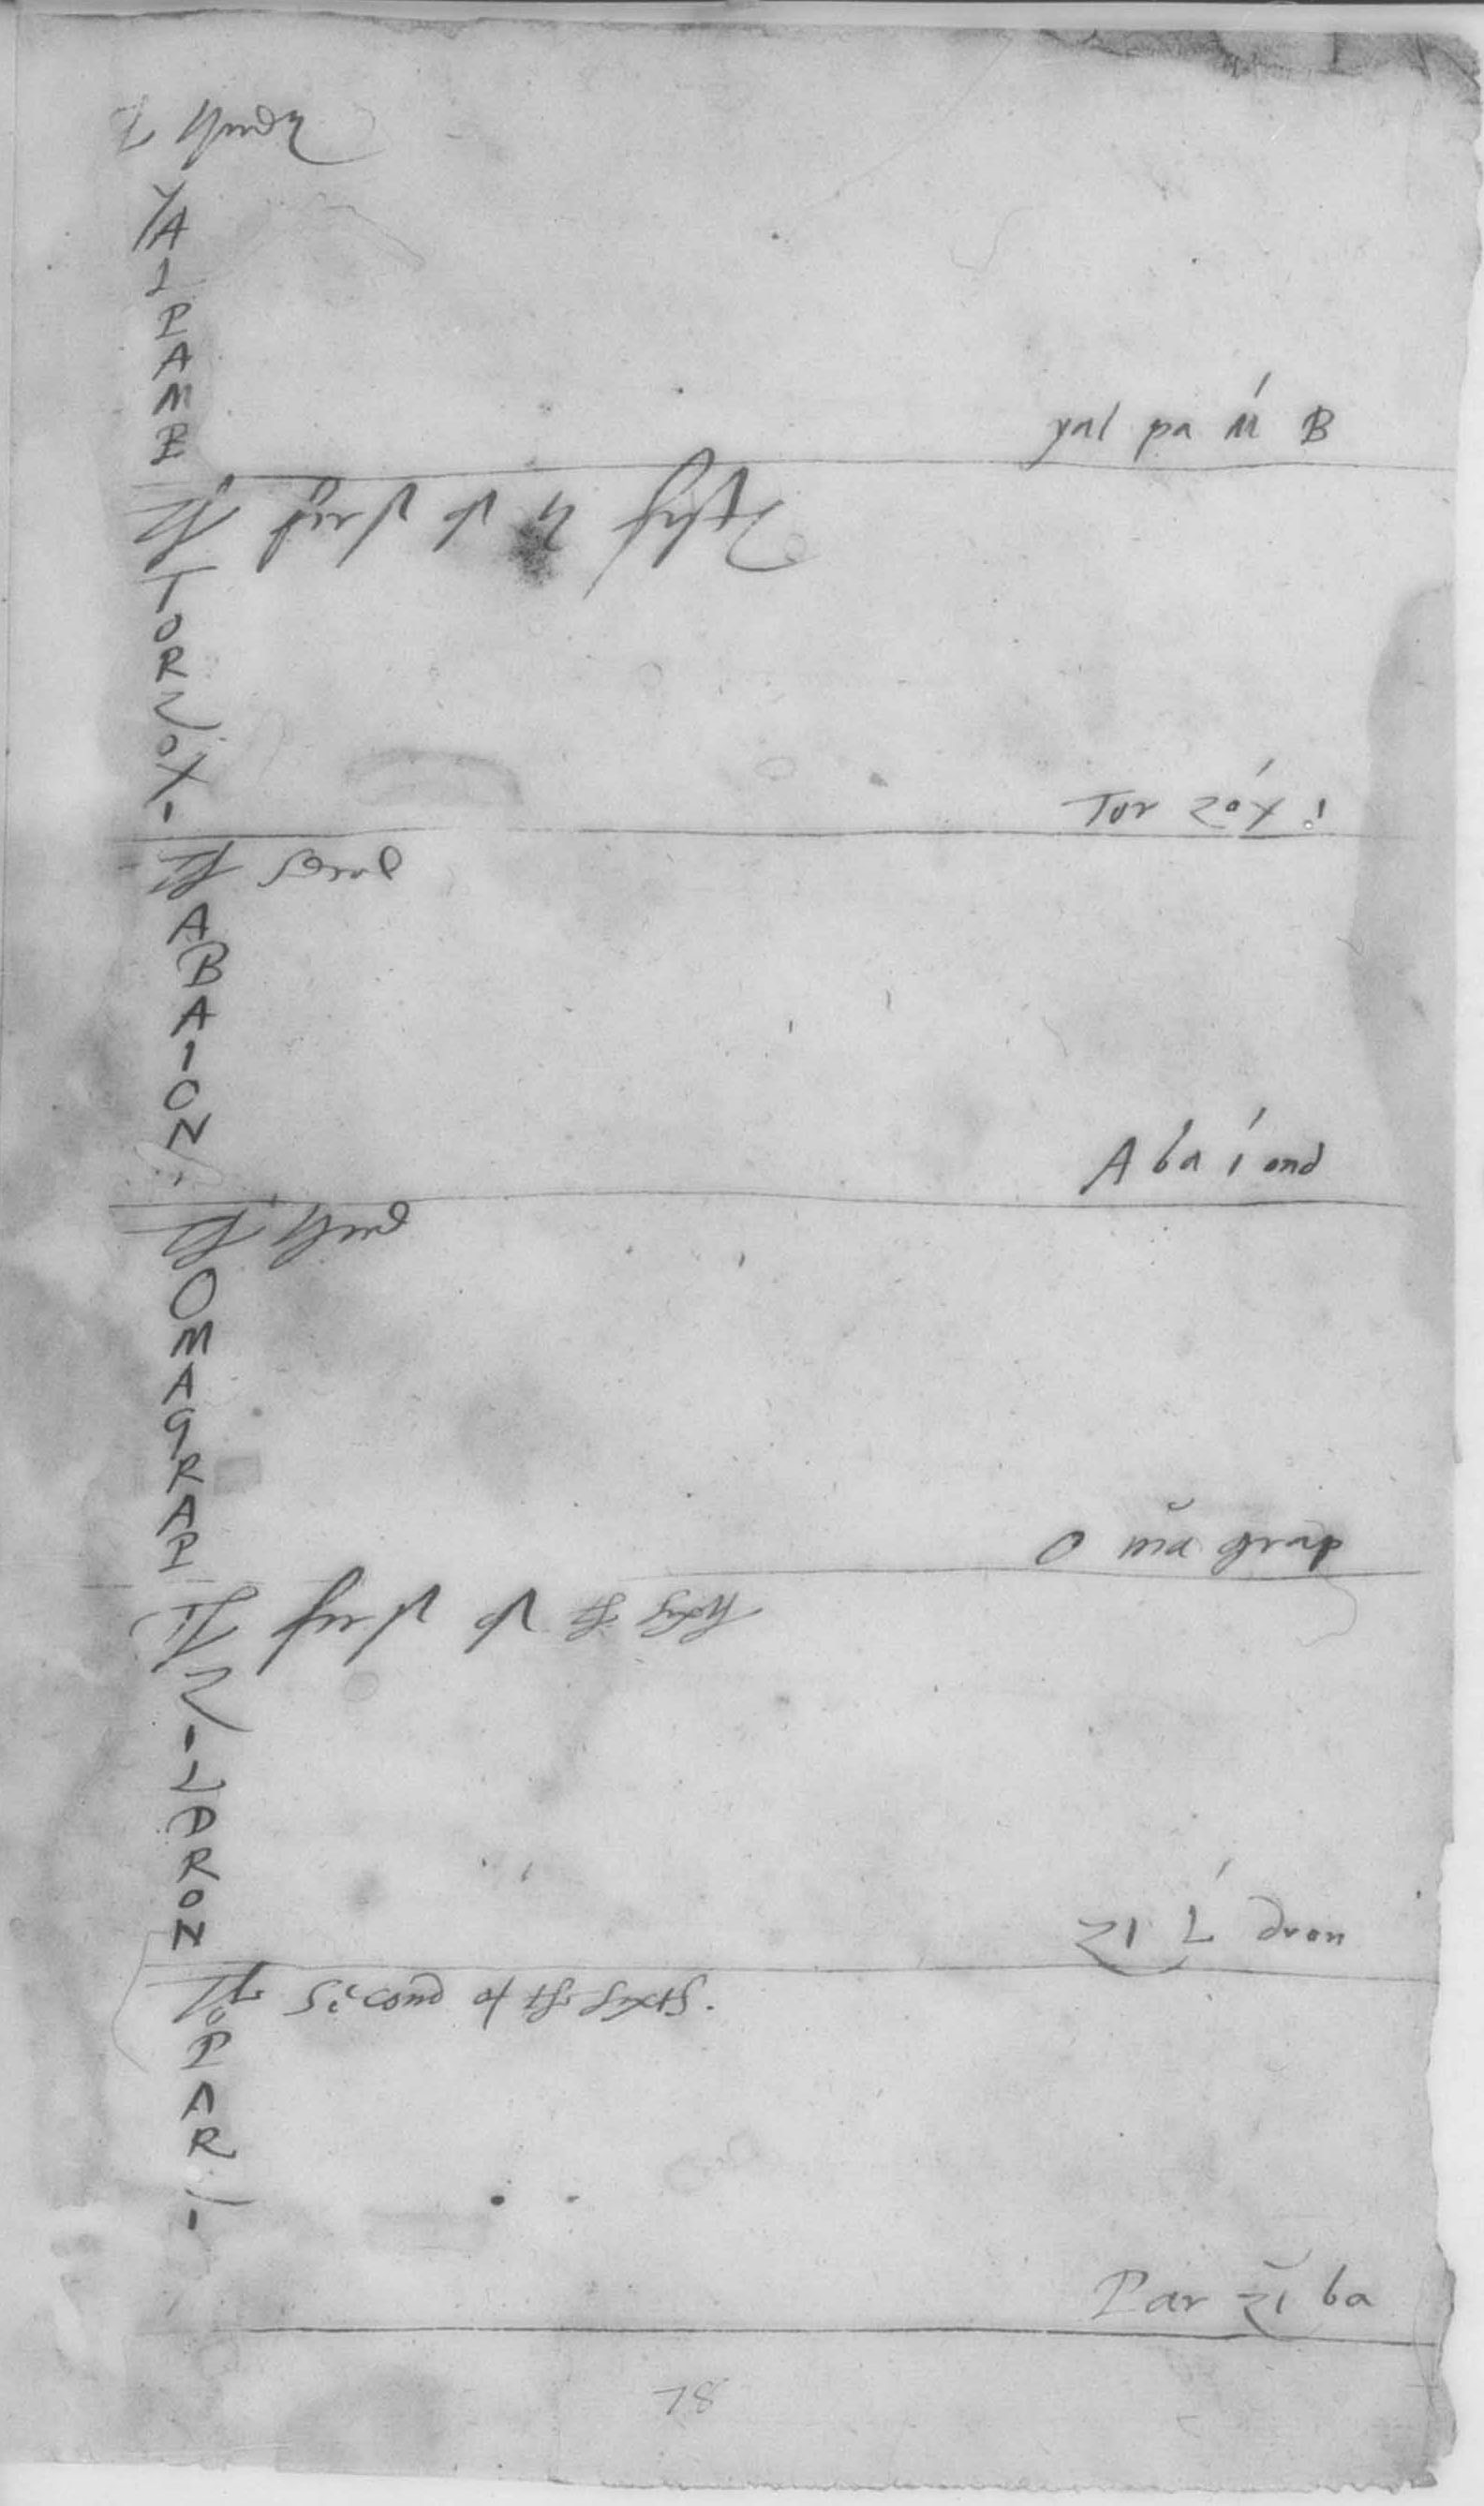 YALPAMB
yal pa ḿ B
The first of y fyft
TORZOX.
Tor zóx !
The second
ABAION.
A ba í ond
The third
OMAGRAP
O mă grap
The first of the sixth
ZILDRON
zi Ĺ dron
The Second of the sixth.
PARZI
Par zĭ ba
78